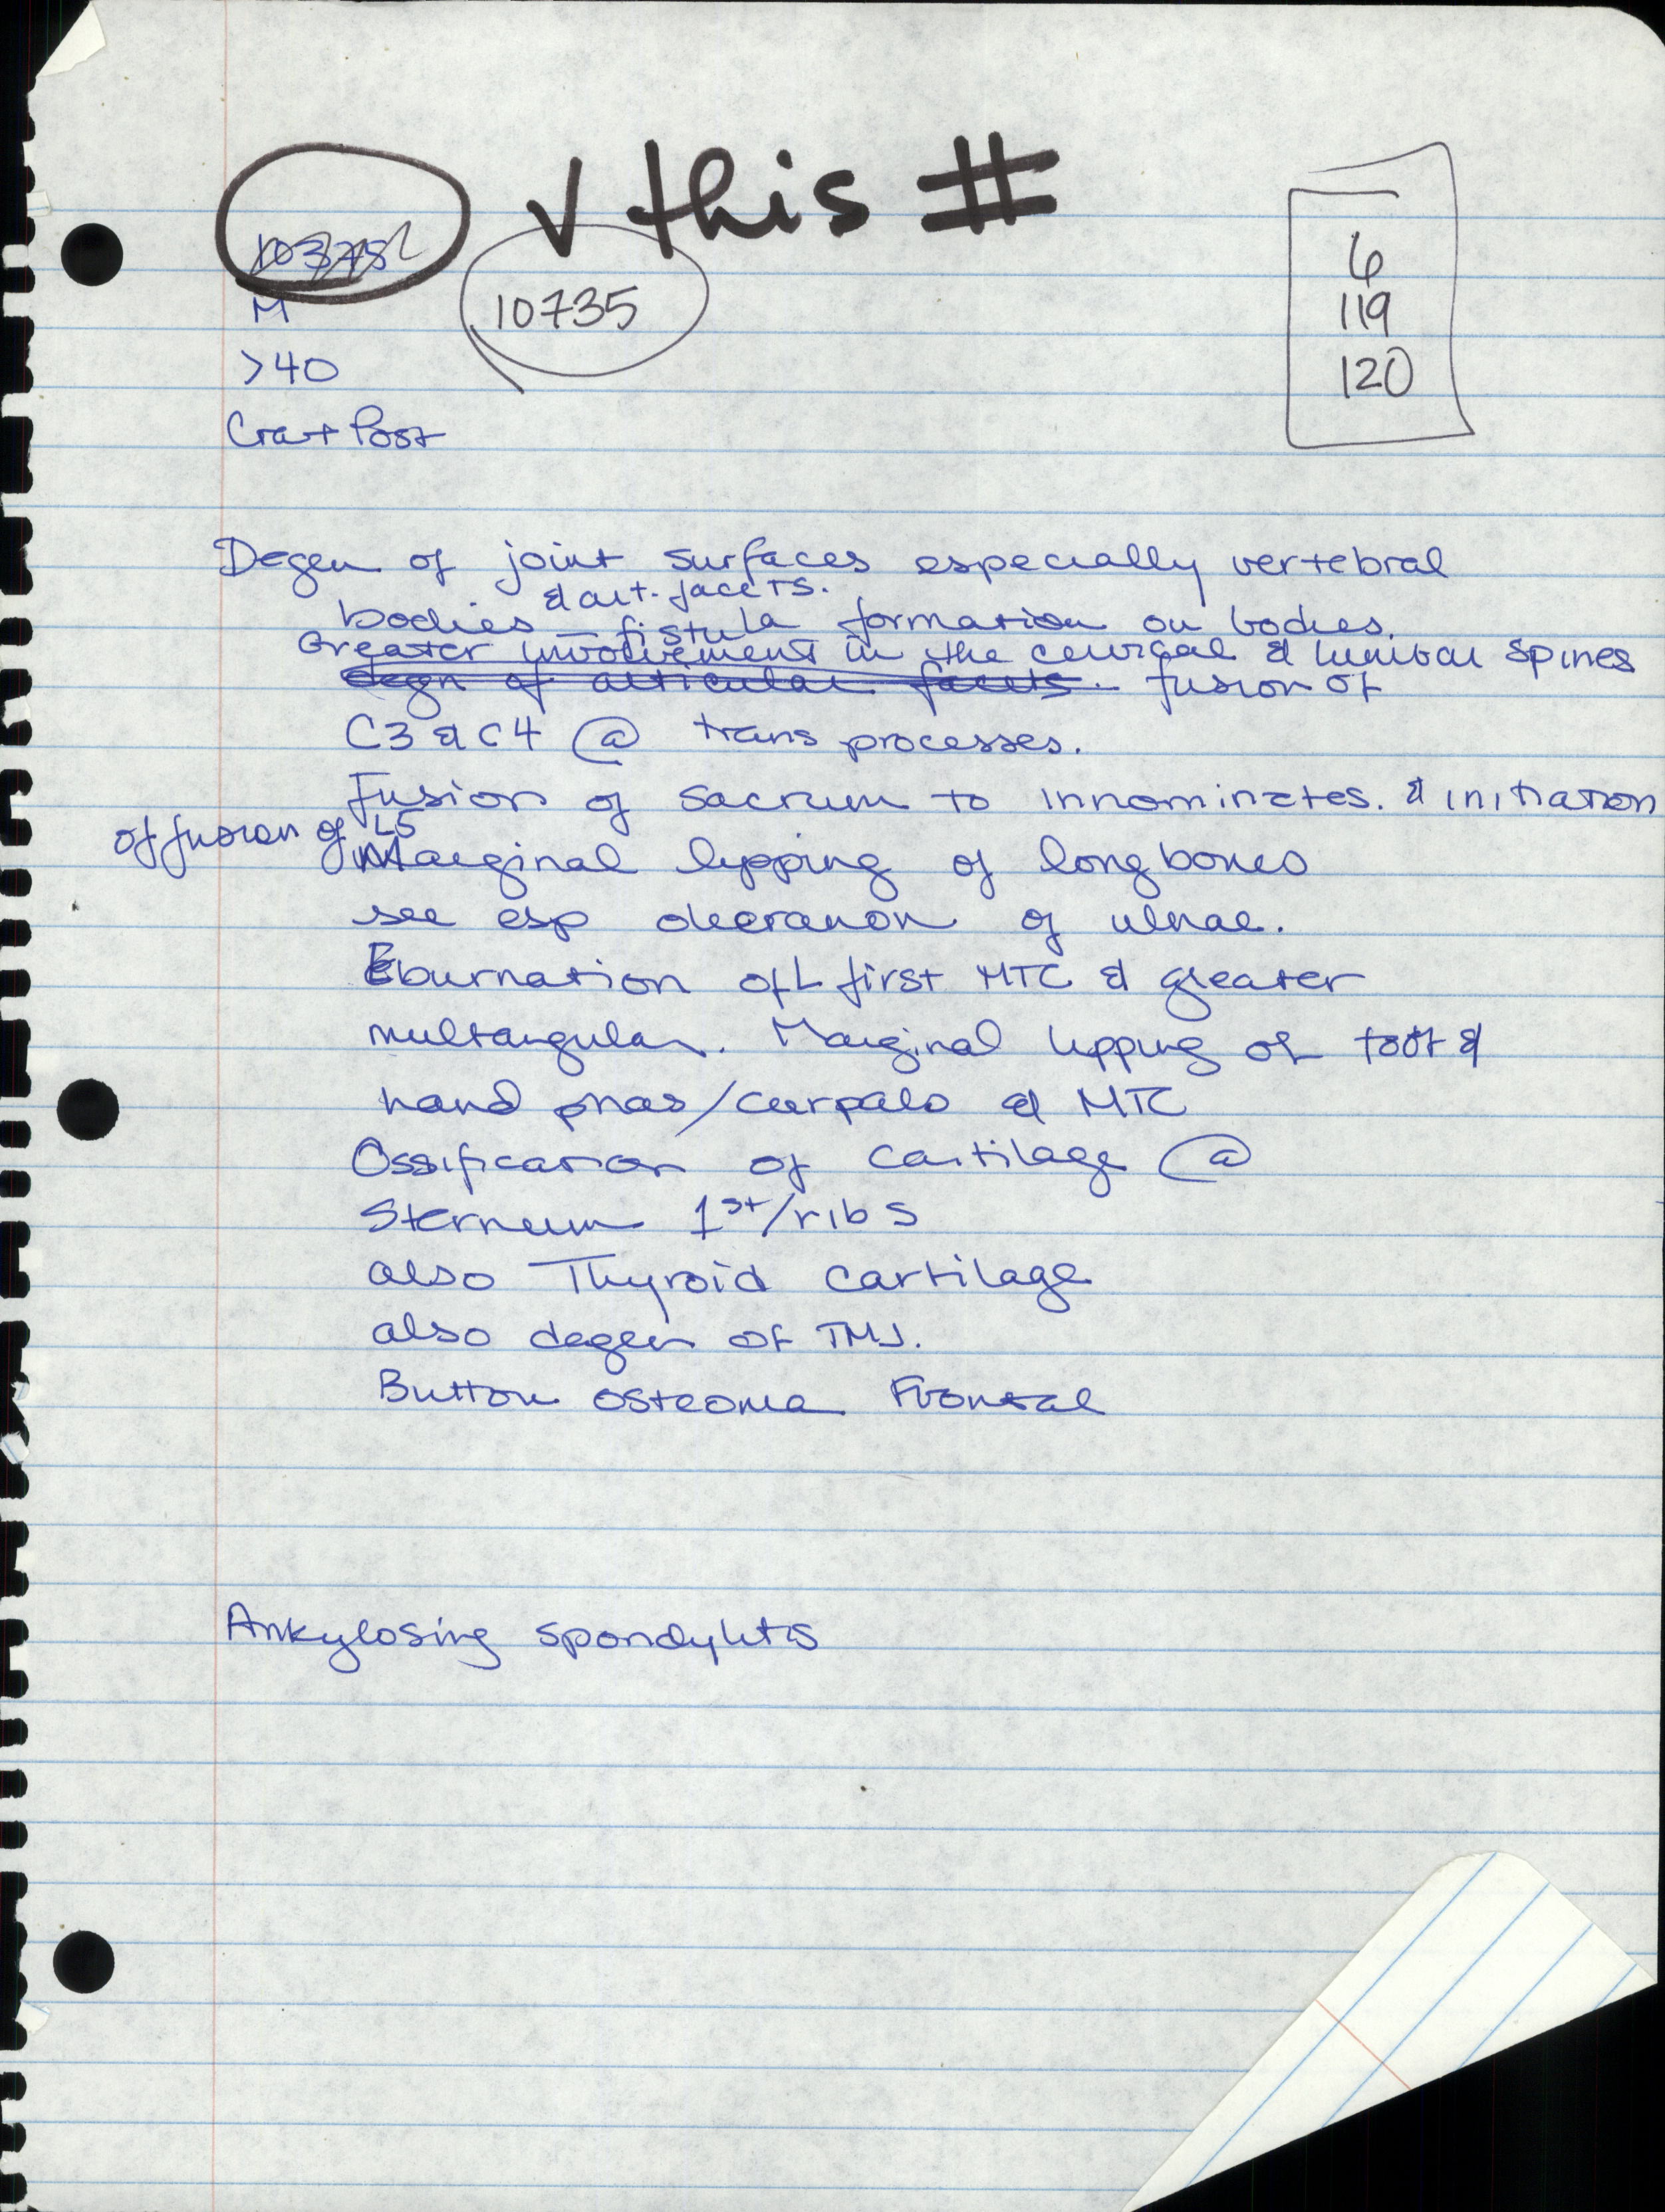 ✓ this #
10375
10735
M
>40
Cra + Post
6
119
120
Degen of joint surfaces especially vertebral
& art. facets.
bodies – fistula formation on bodies.
Greater involvement in the cervical & lumbar spines
degn of articular facets. fusion of
C3 & C4 @ trans processes.
Fusion of sacrum to innominates. & initiation
of fusion of L5
Marginal lipping of long bones
see esp olecranon of ulnae.
Eburnation of L first MTC & greater
multangular. Marginal lipping of foot &
hand phas/carpals & MTC
Ossification of cartilage @
Sternum 1st/ribs
also Thyroid cartilage
also degen of TMJ.
Button osteoma Frontal
Ankylosing spondylitis